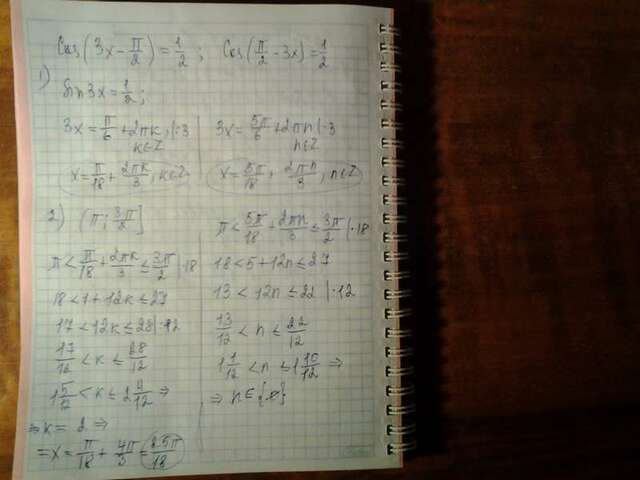 Cos(3x - π/2) = 1/2 ; Cos(π/2 - 3x) = 1/2
1)
Sin 3x = 1/2 ;
3x = π/6 + 2πk, |:3
k∈Z
x = π/18 + 2πk/3, k∈Z
3x = 5π/6 + 2πn |:3
n∈Z
x = 5π/18 + 2πn/3, n∈Z
2) (π; 3π/2]
π < π/18 + 2πk/3 ≤ 3π/2 |·18
18 < 1 + 12k ≤ 27
17 < 12k ≤ 28 |:12
17/12 < k ≤ 28/12
1 5/12 < k ≤ 2 4/12 ⇒
⇒ k = 2 ⇒
= x = π/18 + 4π/3 = 25π/18
π < 5π/18 + 2πn/3 ≤ 3π/2 |·18
18 < 5 + 12n ≤ 27
13 < 12n ≤ 22 |:12
13/12 < n ≤ 22/12
1 1/12 < n ≤ 1 10/12 ⇒
⇒ n ∈ {∅}